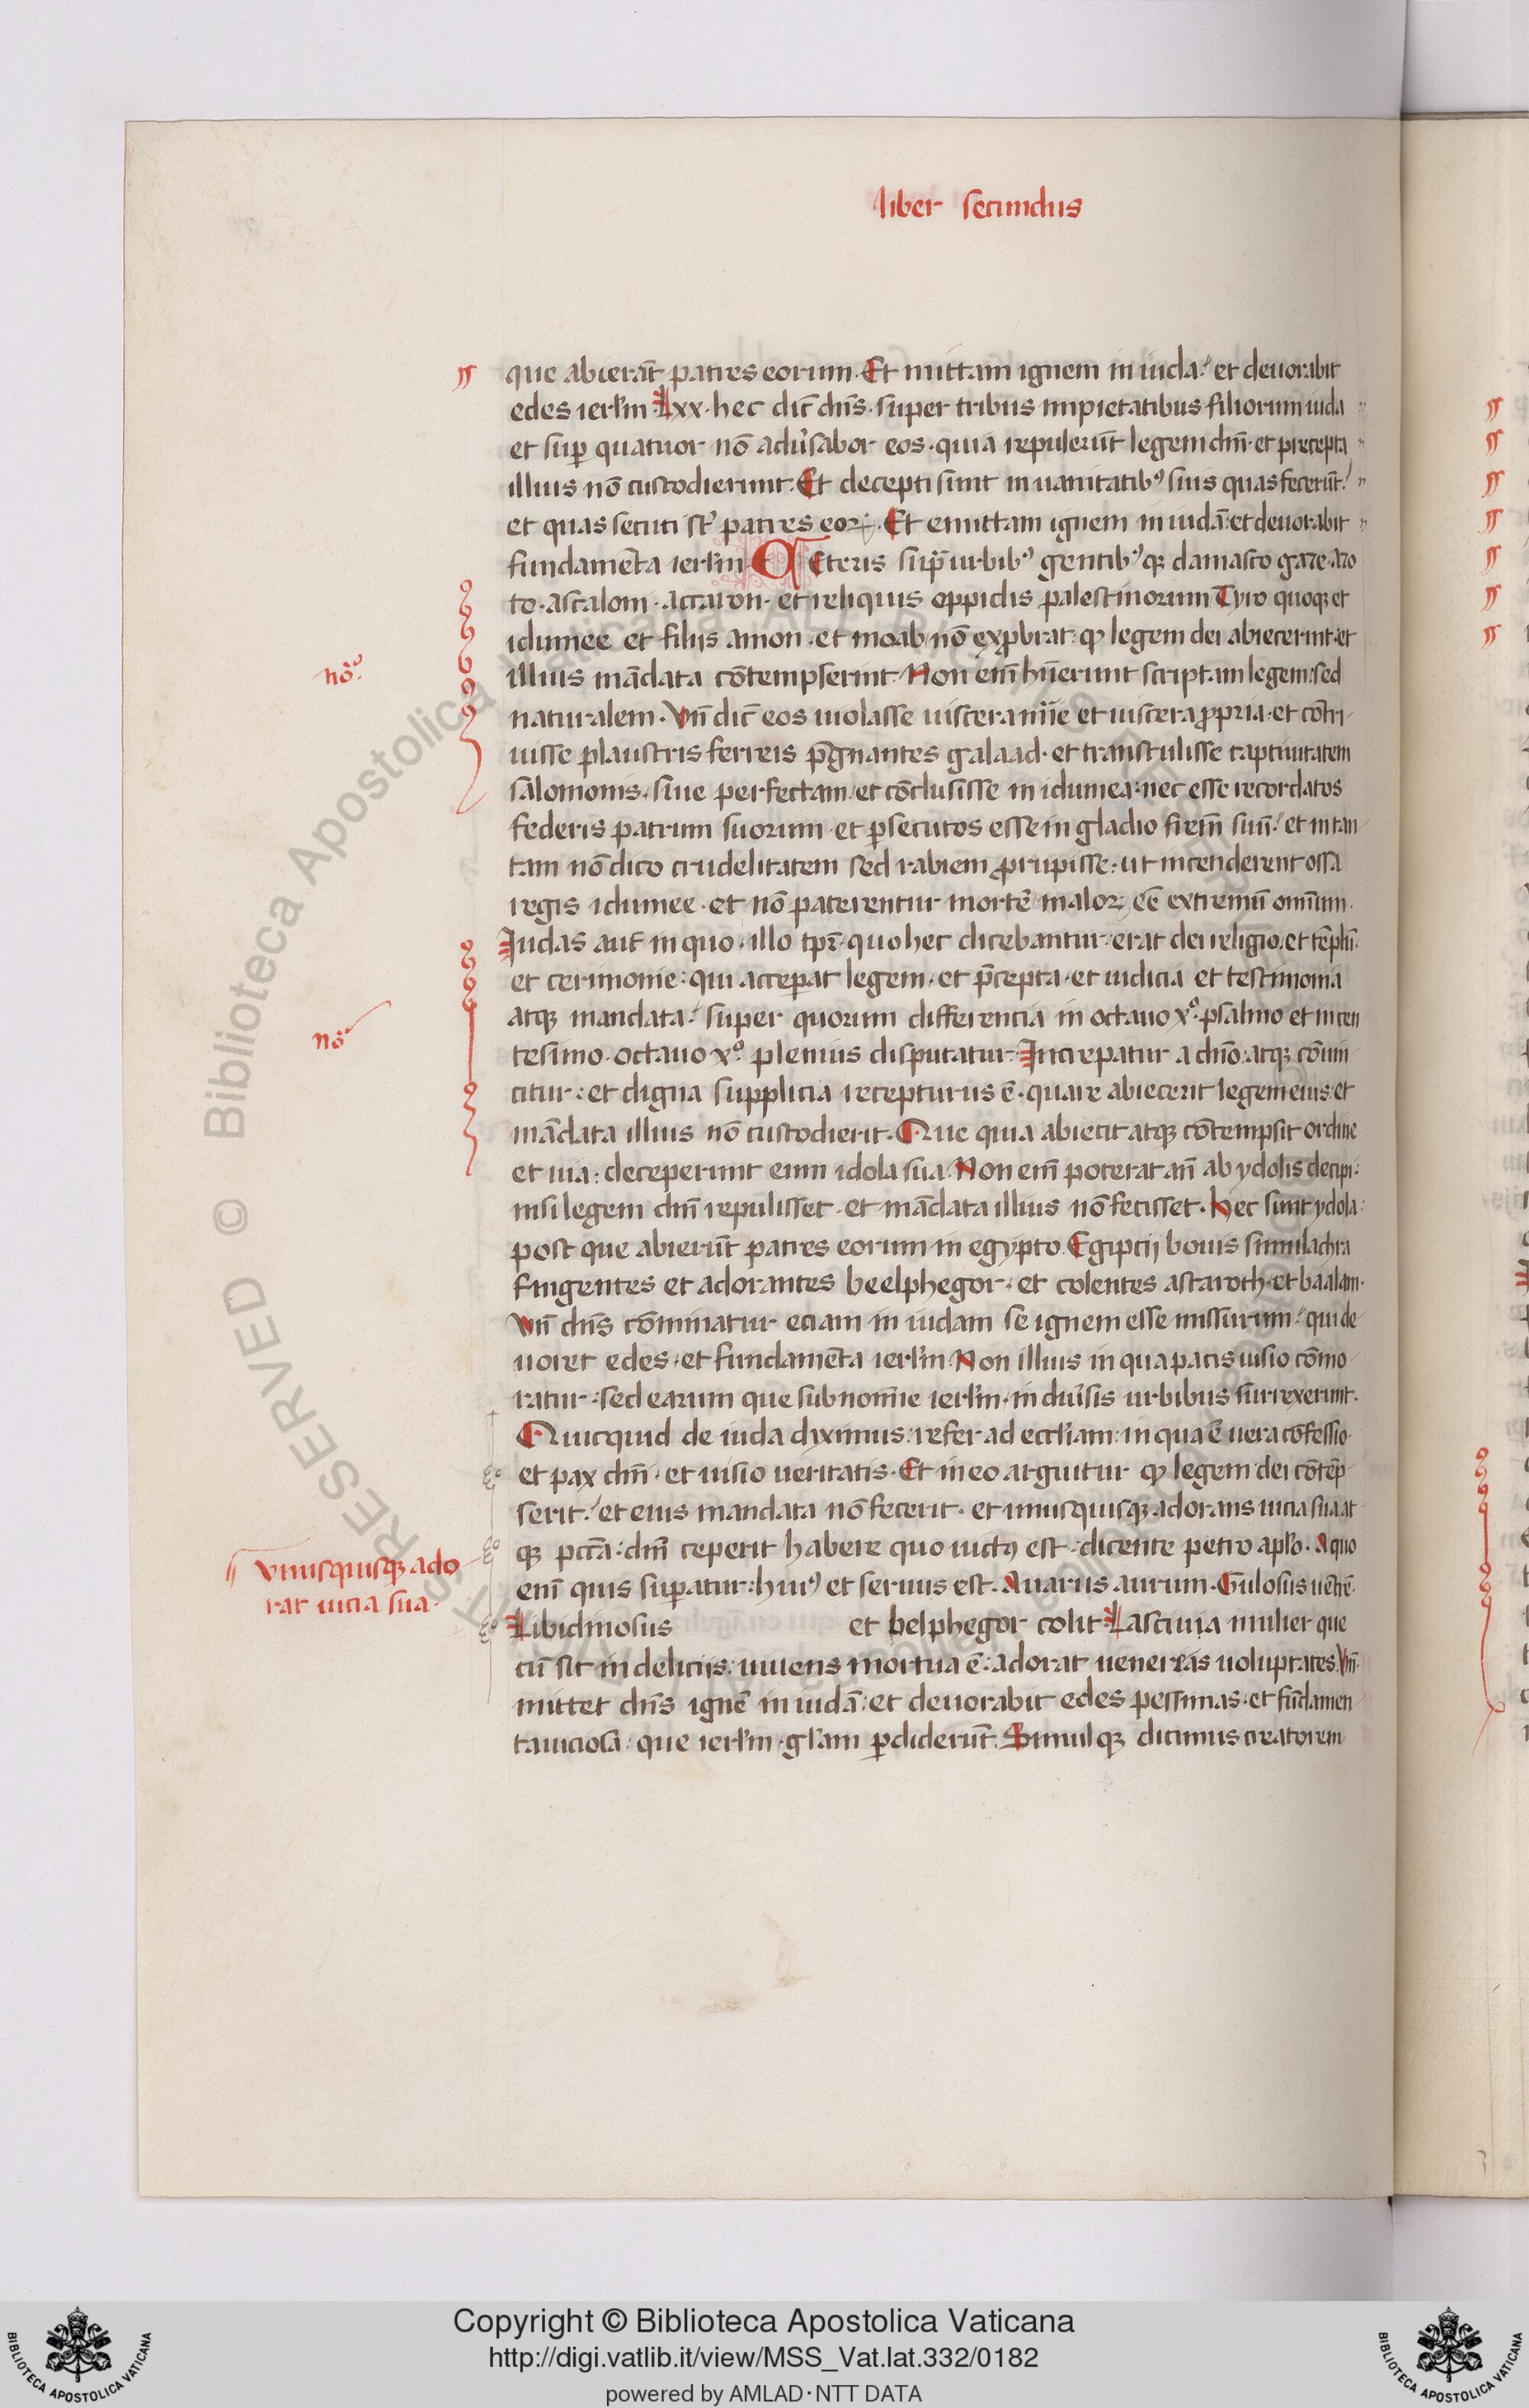 liber secundus
que abierāt patres eorum. Et mittam ignem in iuda: et deuorabit
edes ierl'm. Lxx. hec dic̄ dn̄s. super tribus impietatibus filiorum iuda
et suꝑ quatuor nō adu͛sabor eos. quia repulerūt legem dn̄i. et precepta
illius nō custodierunt. Et decepti sunt in uanitatibꝰ suis quas fecerūt:
et quas secuti st̄ patres eoꝝ. Et emittam ignem in iudā: et deuorabit
fundamēta ierl'm. Ceteris sup̄ urbibꝰ gentibꝰqꝫ damasco gaze. azo
to. ascalom. accaron. et reliquis oppidis palestinorum Tyro quoqꝫ et
idumee et filijs amon. et moab nō exꝓbrat: ꝙ legem dei abiecerint. et
illius mādata cōtempserint. Non em̄ hūerunt scriptam legem: sed
naturalem. Vn̄ dic̄ eos uiolasse uiscera mīe et uiscera ꝓpria. et cōtri
uisse plaustris ferreis p̄gnantes galaad. et transtulisse captiuitatem
salomonis. siue perfectam. et cōclusisse in idumea: nec esse recordatos
federis patrum suorum. et ꝑsecutos esse in gladio frem̄ suū: et in tan
tam nō dico crudelitatem sed rabiem ꝓrupisse: ut incenderent ossa
regis idumee. et nō paterentur mortē maloꝝ eē extremū omīum.
Iudas aut̄ in quo. illo tp̄r. quo hec dicebantur. erat dei religio. et tēplū.
et cerimonie: qui acceꝑat legem. et p̄cepta. et iudicia et testimonia
atqꝫ mandata: super quorum differencia in octauo xͦ. psalmo et in cen
tesimo. octauo xͦ. plenius disputatur. Increpatur a dn̄o: atqꝫ cōuin
citur: et digna supplicia recepturus ē. quare abiecerit legem eius. et
mādata illius nō custodierit. Que quia abiecit atqꝫ cōtempsit ordine
et uia: deceperunt eum idola sua. Non em̄ poterat an̄ ab ydolis decipi:
nisi legem dn̄i repulisset. et mādata illius nō fecisset. Hec sunt ydola:
post que abierūt patres eorum in egypto. Egiptij bouis simulachra
fingentes et adorantes beelphegor. et colentes astaroth. et baalam.
Vn̄ dn̄s cōminatur eciam in iudam se ignem esse missurum: qui de
uoret edes. et fundamēta ierl'm. Non illius in qua pacis uisio cōmo
ratur: sed earum que sub nomīe ierl'm. in diu͛sis urbibus surrexerunt.
Quicquid de iuda diximus: refer ad eccl'iam: in qua ē uera cōfessio
et pax dn̄i. et uisio ueritatis. Et in eo arguitur ꝙ legem dei cōtēp
serit: et eius mandata nō fecerit. et unusquisqꝫ adorans uicia sua at
qꝫ pcc̄a: dn̄m ceperit habere quo uictꝰ est. dicente petro apl'o. A quo
enī quis suꝑatur: huiꝰ et seruus est. Auarus aurum. Gulosus uētrē.
Libidinosus et belphegor colit. Lasciuia mulier que
cū sit in delicijs. uiuens mortua ē: adorat uenereas uoluptates. Vn̄
mittet dn̄s ignē in iudā: et deuorabit edes pessimas. et fūdamen
ta uiciosa: que ierl'm. gl'am ꝑdiderūt. Simulqꝫ dicimus creatorem
nō.
nō
vnusquisqꝫ ado
rat uicia sua.
Biblioteca Apostolica Vaticana
RESERVED © Biblioteca Apostolica Vaticana
Copyright © Biblioteca Apostolica Vaticana
http://digi.vatlib.it/view/MSS_Vat.lat.332/0182
powered by AMLAD·NTT DATA
BIBLIOTECA APOSTOLICA VATICANA
BIBLIOTECA APOSTOLICA VATICANA